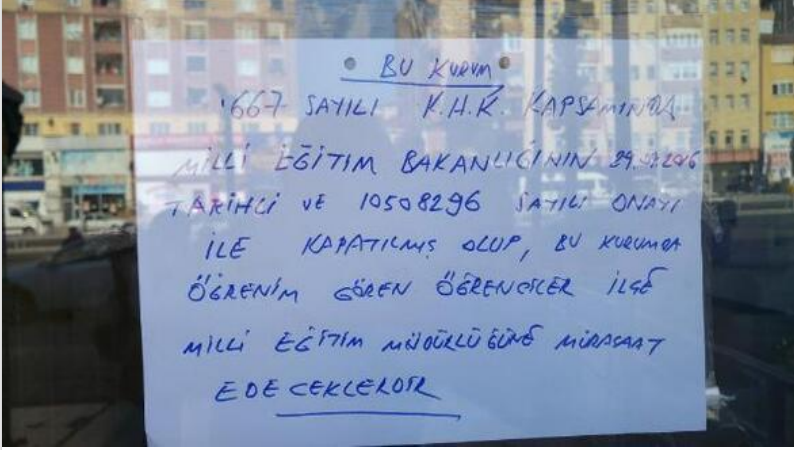 BU KURUM
667 SAYILI K.H.K. KAPSAMINDA
MİLLİ EĞİTİM BAKANLIĞININ 29.09.2016
TARİHLİ VE 10508296 SAYILI ONAYI
İLE KAPATILMIŞ OLUP, BU KURUMDA
ÖĞRENİM GÖREN ÖĞRENCİLER İLÇE
MİLLİ EĞİTİM MÜDÜRLÜĞÜNE MÜRACAAT
EDECEKLERDİR